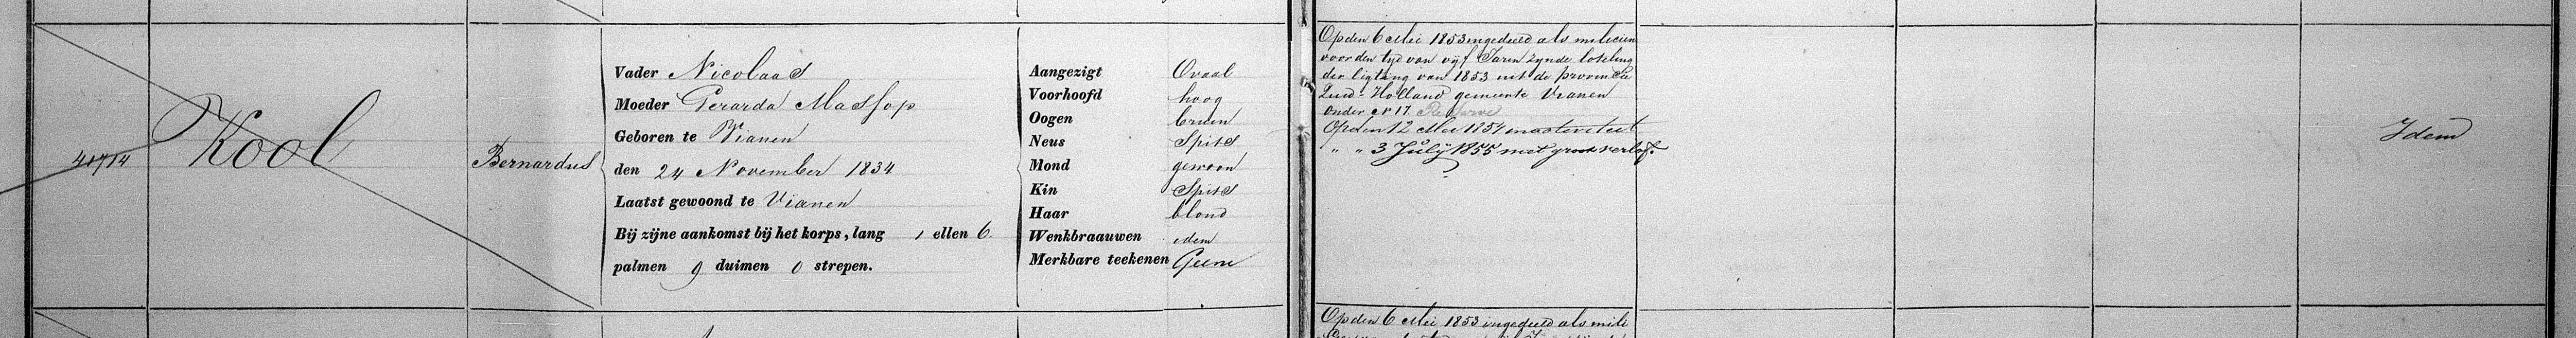 41714
Kool
Bernardus
Vader Nicolaas
Moeder Gerarda Massop
Geboren te Vianen
den 24 November 1834
Laatst gewoond te Vianen
Bij zijne aankomst bij het korps, lang 1 ellen 6.
palmen 9 duimen 0 strepen.
Aangezigt Ovaal
Voorhoofd hoog
Oogen bruin
Neus Spits
Mond gewoon
Kin Spits
Haar blond
Wenkbraauwen idem
Merkbare teekenen Geene
Op den 6 Mei 1853 ingedeeld als milicien
voor den tyd van vyf Jaren zynde loteling
der ligting van 1853 uit de provincie
Zuid-Holland gemeente Vianen
onder No 17. Reserve
Op den 12 Mei 1854 in activiteit
" " 3 July 1855 met groot verlof.
Idem
Op den 6 Mei 1853 ingedeeld als mili